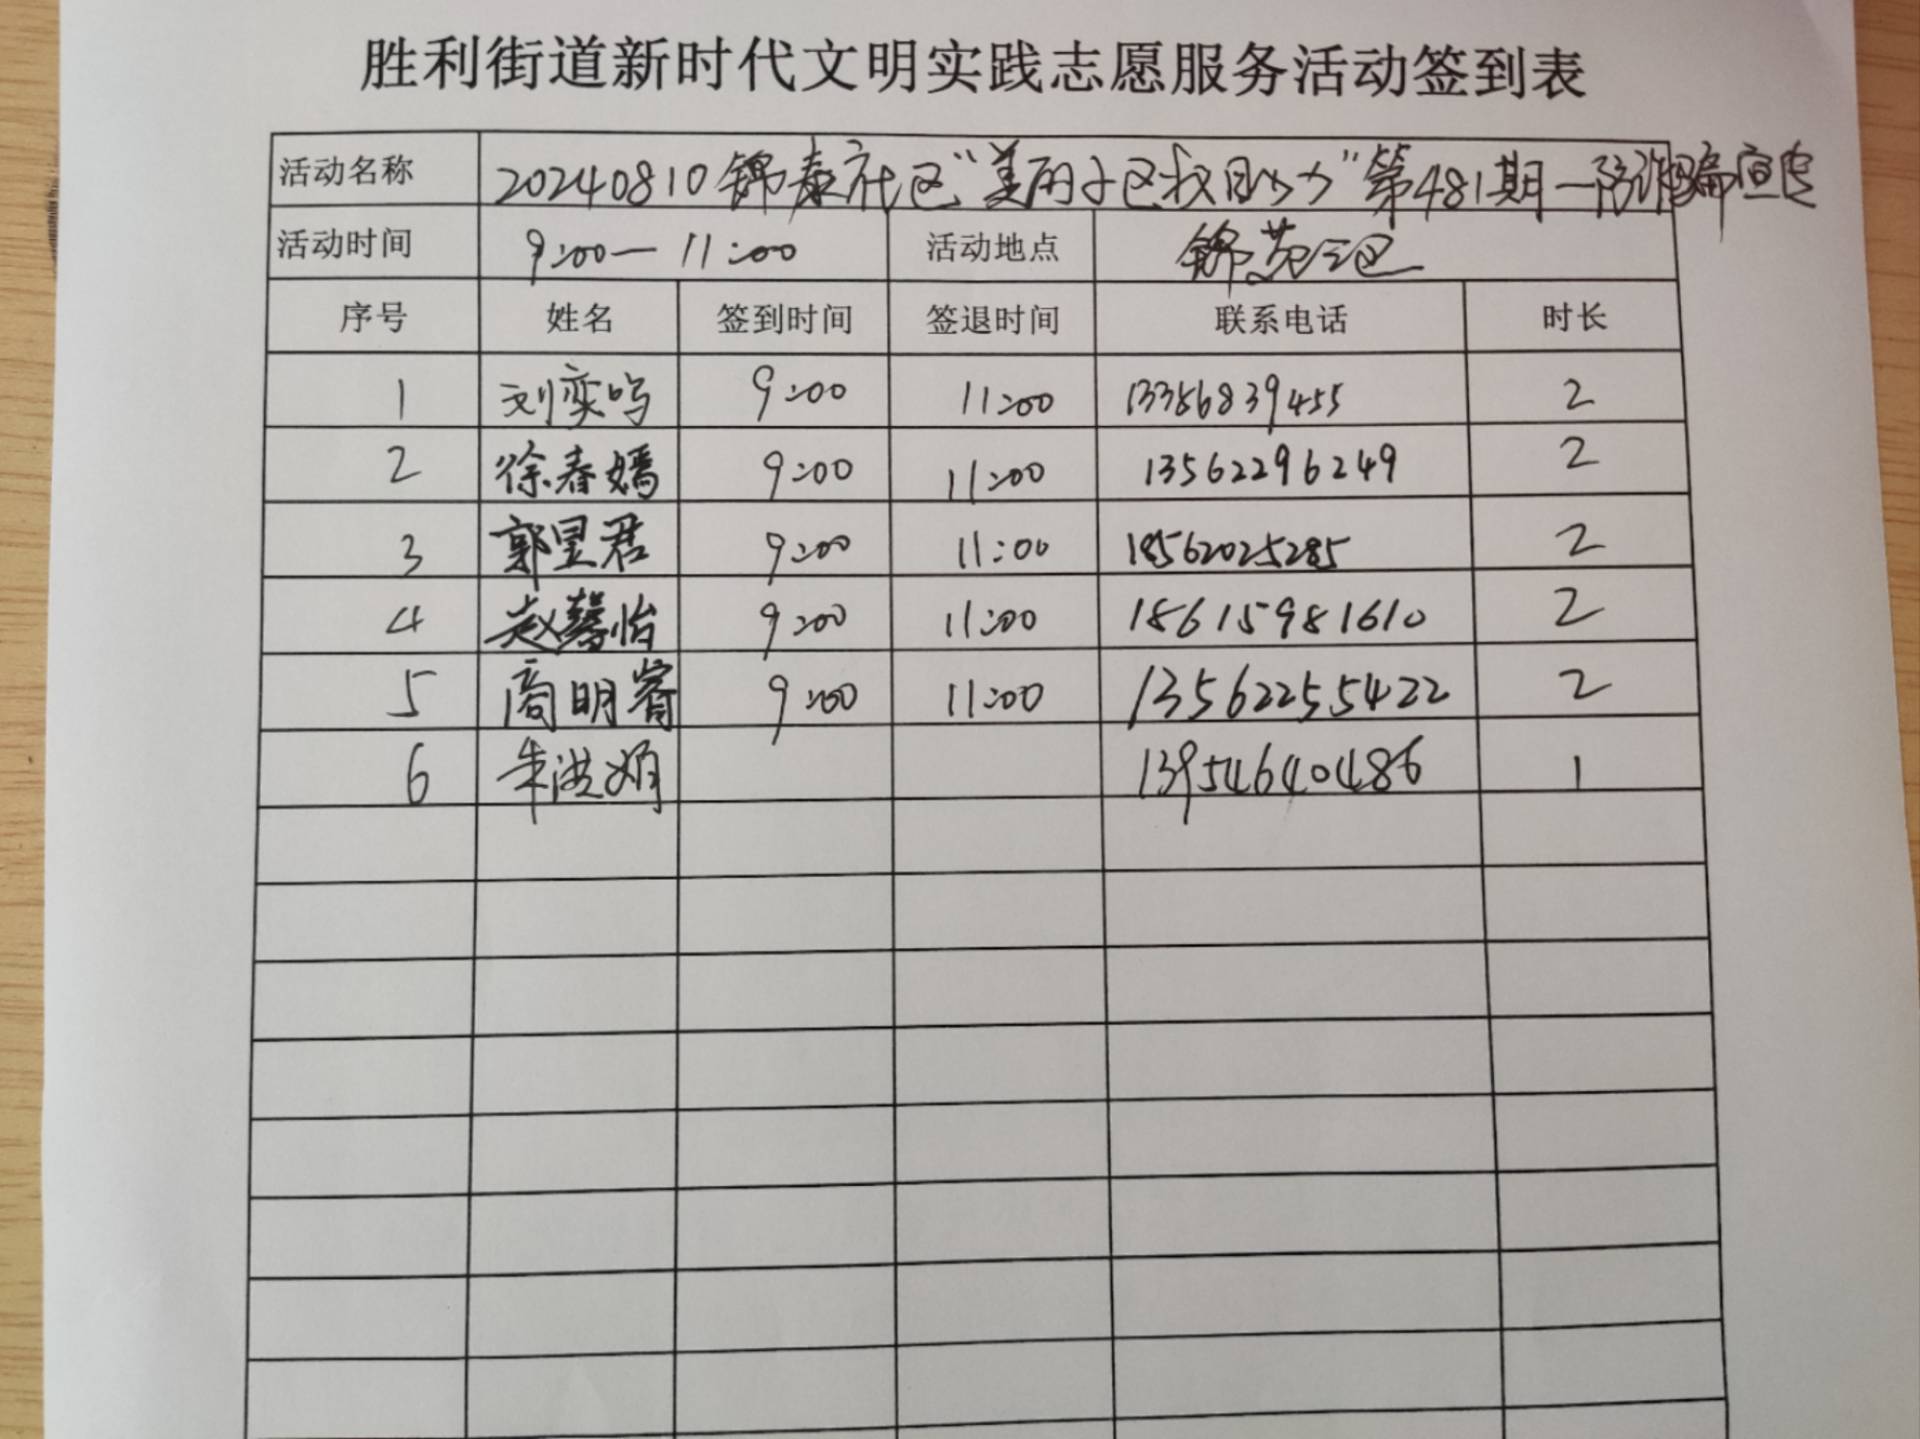 胜利街道新时代文明实践志愿服务活动签到表
活动名称 20240810锦泰社区“美丽小区我助力”第481期—防诈骗宣传
活动时间 9:00—11:00 活动地点 锦苑三区
序号 姓名 签到时间 签退时间 联系电话 时长
1 刘奕鸣 9:00 11:00 13356839455 2
2 徐春嫣 9:00 11:00 13562296249 2
3 郭昱君 9:00 11:00 18562025285 2
4 赵馨怡 9:00 11:00 18615981610 2
5 商明睿 9:00 11:00 13562255422 2
6 朱洪娟 13954640486 1